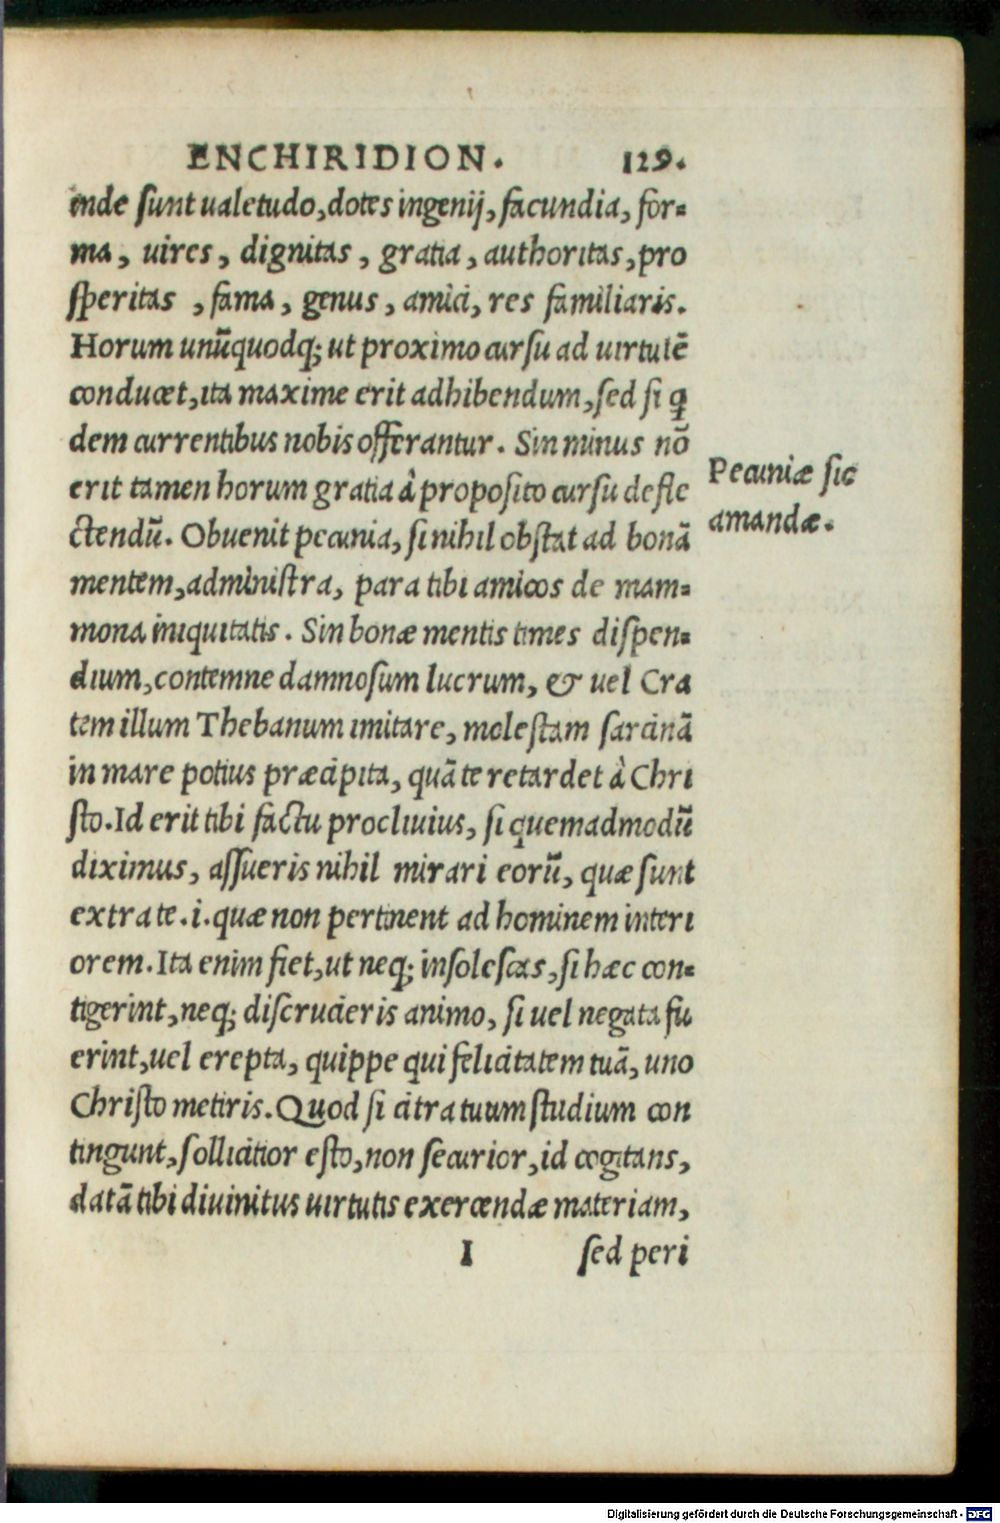 ENCHIRIDION. 129.
inde sunt ualetudo, dotes ingenij, facundia, for=
ma, uires, dignitas, gratia, authoritas, pro
speritas, fama, genus, amici, res familiaris.
Horum unūquodq; ut proximo cursu ad uirtutē
conducet, ita maxime erit adhibendum, sed si q
dem currentibus nobis offerantur. Sin minus nō
erit tamen horum gratia à proposito cursu defle
ctendū. Obuenit pecunia, si nihil obstat ad bonā
Pecuniæ sic
amandæ.
mentem, administra, para tibi amicos de mam=
mona iniquitatis. Sin bonæ mentis times dispen=
dium, contemne damnosum lucrum, & uel Cra
tem illum Thebanum imitare, molestam sarcinā
in mare potius præcipita, quā te retardet à Chri
sto. Id erit tibi factu procliuius, si quemadmodū
diximus, assueris nihil mirari eorū, quæ sunt
extra te .i. quæ non pertinent ad hominem interi
orem. Ita enim fiet, ut neq; insolescas, si hæc con=
tigerint, neq; discrucieris animo, si uel negata fu
erint, uel erepta, quippe qui felicitatem tuā, uno
Christo metiris. Quod si citra tuum studium con
tingunt, sollicitior esto, non securior, id cogitans,
datā tibi diuinitus uirtutis exercendæ materiam,
I sed peri
Digitalisierung gefördert durch die Deutsche Forschungsgemeinschaft - DFG